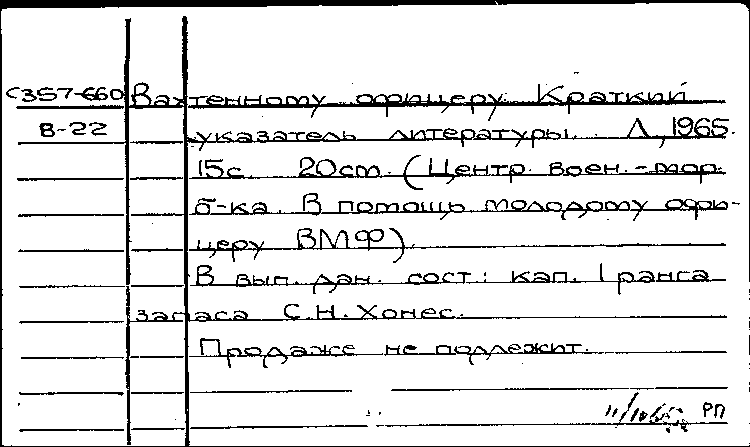 С357-660 Вахтенному офицеру. Краткий
В-22 указатель литературы. Л., 1965.
15с. 20cm. (Центр. воен.-мор.
б-ка. В помощь молодому офи-
церу ВМФ).
В вып. дан. сост.: кап. I ранга
запаса С.Н. Хонес.
Продаже не подлежит.
РП